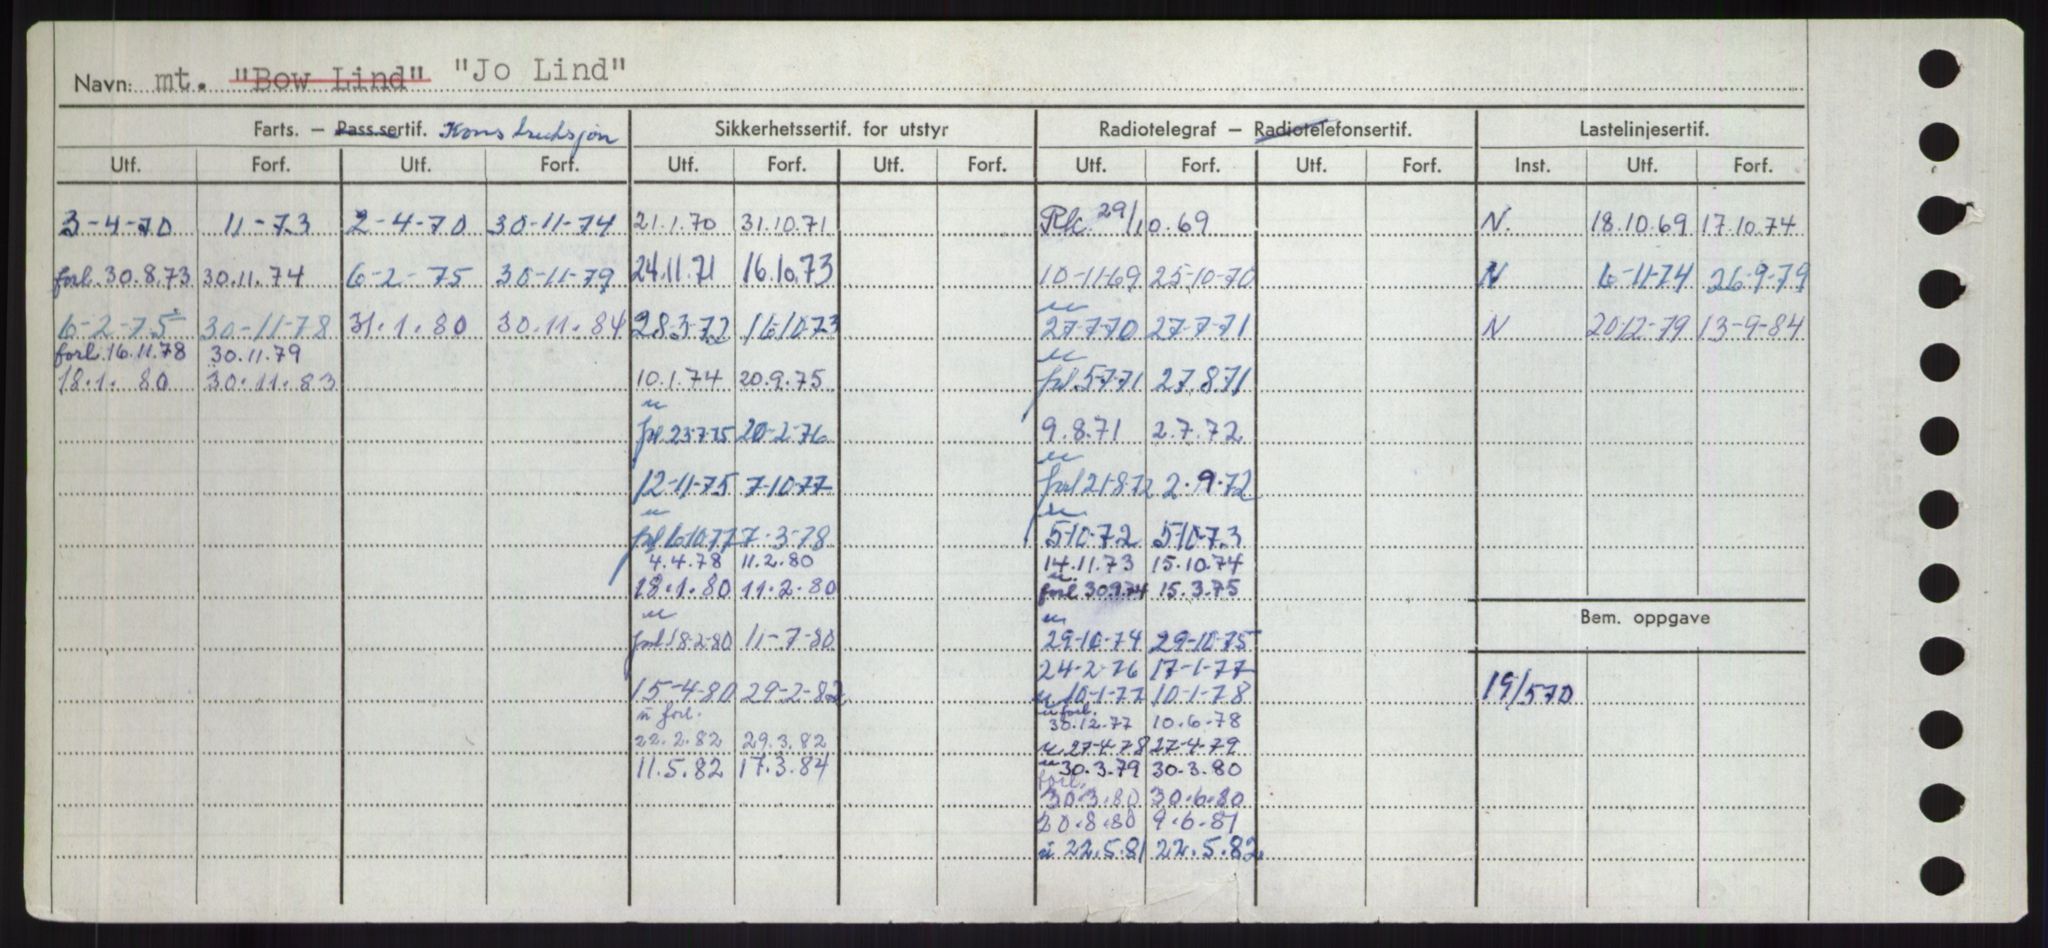 Navn: mt. "Bow Lind" "Jo Lind"
Farts. – Pass.sertif. Konstruksjon Sikkerhetssertif. for utstyr Radiotelegraf – Radiotelefonsertif. Lastelinjesertif.
Utf. Forf. Utf. Forf. Utf. Forf. Utf. Forf. Utf. Forf. Utf. Forf. Inst. Utf. Forf.
3-4-70 11-73 2-4-70 30-11-74 21.1.70 31.10.71 Rk. 29/10.69 N. 18.10.69 17.10.74
forl. 30.8.73 30.11.74 6-2-75 30-11-79 24.11.71 16.10.73 10-11-69 25-10-70 N 6-11-74 26-9-79
u
6-2-75 30-11-78 31.1.80 30.11.84 28-3-72 16.10.73 27-7-70 27-7-71 N 20-12-79 13-9-84
forl. 16.11.78 30.11.79 u
18.1.80 30.11.83 10.1.74 20.9.75 forl. 5-7-71 27.8.71
u
forl 23-7-75 20-2-76 9.8.71 2.7.72
u
12-11-75 7-10-77 forl 21-8-72 2.9.72
u u
forl 6.10.77 7-3-78 5-10-72 5-10-73
4.4.78 11.2.80 14.11.73 15.10.74
u
18.1.80 11.2.80 forl 30.9.74 15.3.75
u u
forl 18-2-80 11-7-80 29-10-74 29-10-75
Bem. oppgave
24-2-76 17-1-77
15-4-80 29-2-82 u 10-1-77 10-1-78 19/570
u forl. u forl.
30.12.77 10.6.78
22.2.82 29.3.82 u 27-4-78 27-4-79
11.5.82 17.3.84 u 30.3.79 30.3.80
forl.
30.3.80 30.6.80
20.8.80 9.6.81
u 22.5.81 22.5.82